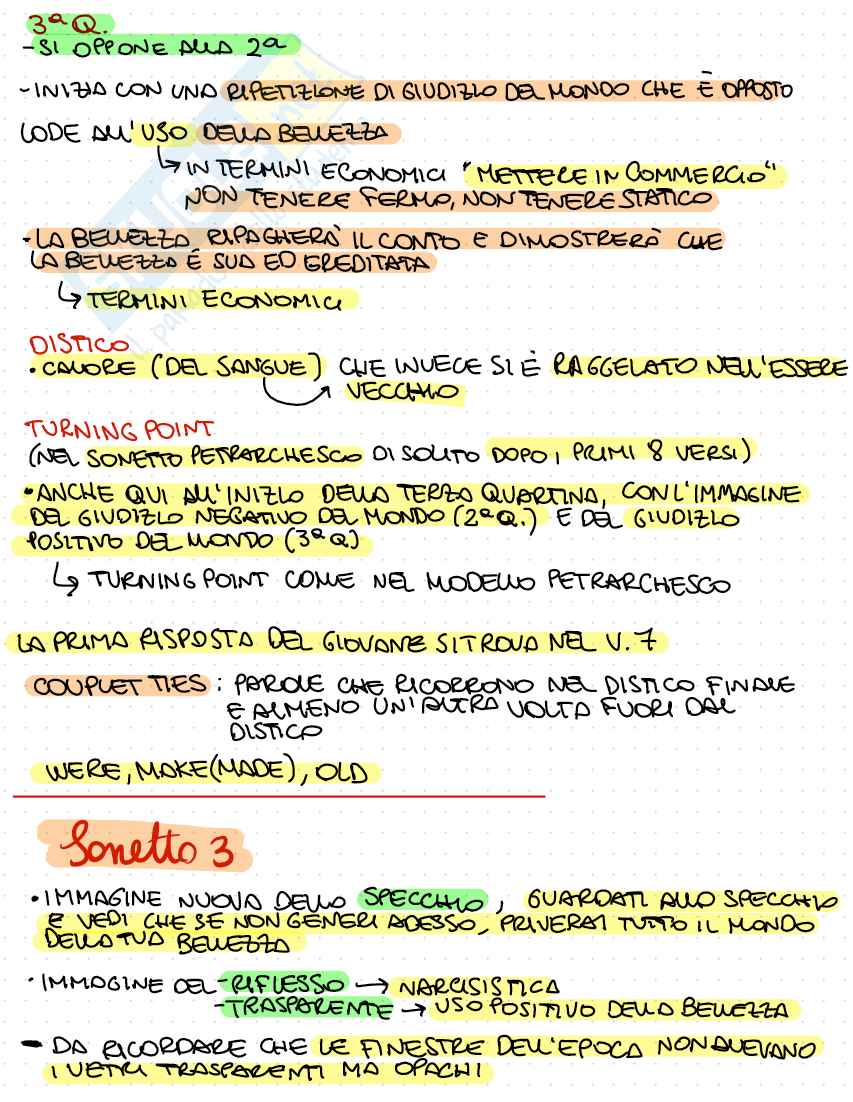 3ª Q.
- SI OPPONE ALLA 2ª
- INIZIA CON UNA RIPETIZIONE DI GIUDIZIO DEL MONDO CHE È OPPOSTO
LODE ALL'USO DELLA BELLEZZA
↳ IN TERMINI ECONOMICI "METTERE IN COMMERCIO"
NON TENERE FERMO, NON TENERE STATICO
- LA BELLEZZA RIPAGHERÀ IL CONTO E DIMOSTRERÀ CHE
LA BELLEZZA É SUA ED EREDITATA
↳ TERMINI ECONOMICI
DISTICO
• CALORE (DEL SANGUE) CHE INVECE SI È RAGGELATO NELL'ESSERE
VECCHIO
TURNING POINT
(NEL SONETTO PETRARCHESCO DI SOLITO DOPO I PRIMI 8 VERSI)
• ANCHE QUI ALL'INIZIO DELLA TERZA QUARTINA, CON L'IMMAGINE
DEL GIUDIZIO NEGATIVO DEL MONDO (2ª Q.) E DEL GIUDIZIO
POSITIVO DEL MONDO (3ª Q)
↳ TURNING POINT COME NEL MODELLO PETRARCHESCO
LA PRIMA RISPOSTA DEL GIOVANE SI TROVA NEL V. 7
COUPLET TIES : PAROLE CHE RICORRONO NEL DISTICO FINALE
E ALMENO UN'ALTRA VOLTA FUORI DAL
DISTICO
WERE, MAKE(MADE), OLD
Sonetto 3
• IMMAGINE NUOVA DELLO SPECCHIO, GUARDATI ALLO SPECCHIO
E VEDI CHE SE NON GENERI ADESSO, PRIVERAI TUTTO IL MONDO
DELLA TUA BELLEZZA
• IMMAGINE DEL - RIFLESSO → NARCISISTICA
- TRASPARENTE → USO POSITIVO DELLA BELLEZZA
- DA RICORDARE CHE LE FINESTRE DELL'EPOCA NON AVEVANO
I VETRI TRASPARENTI MA OPACHI